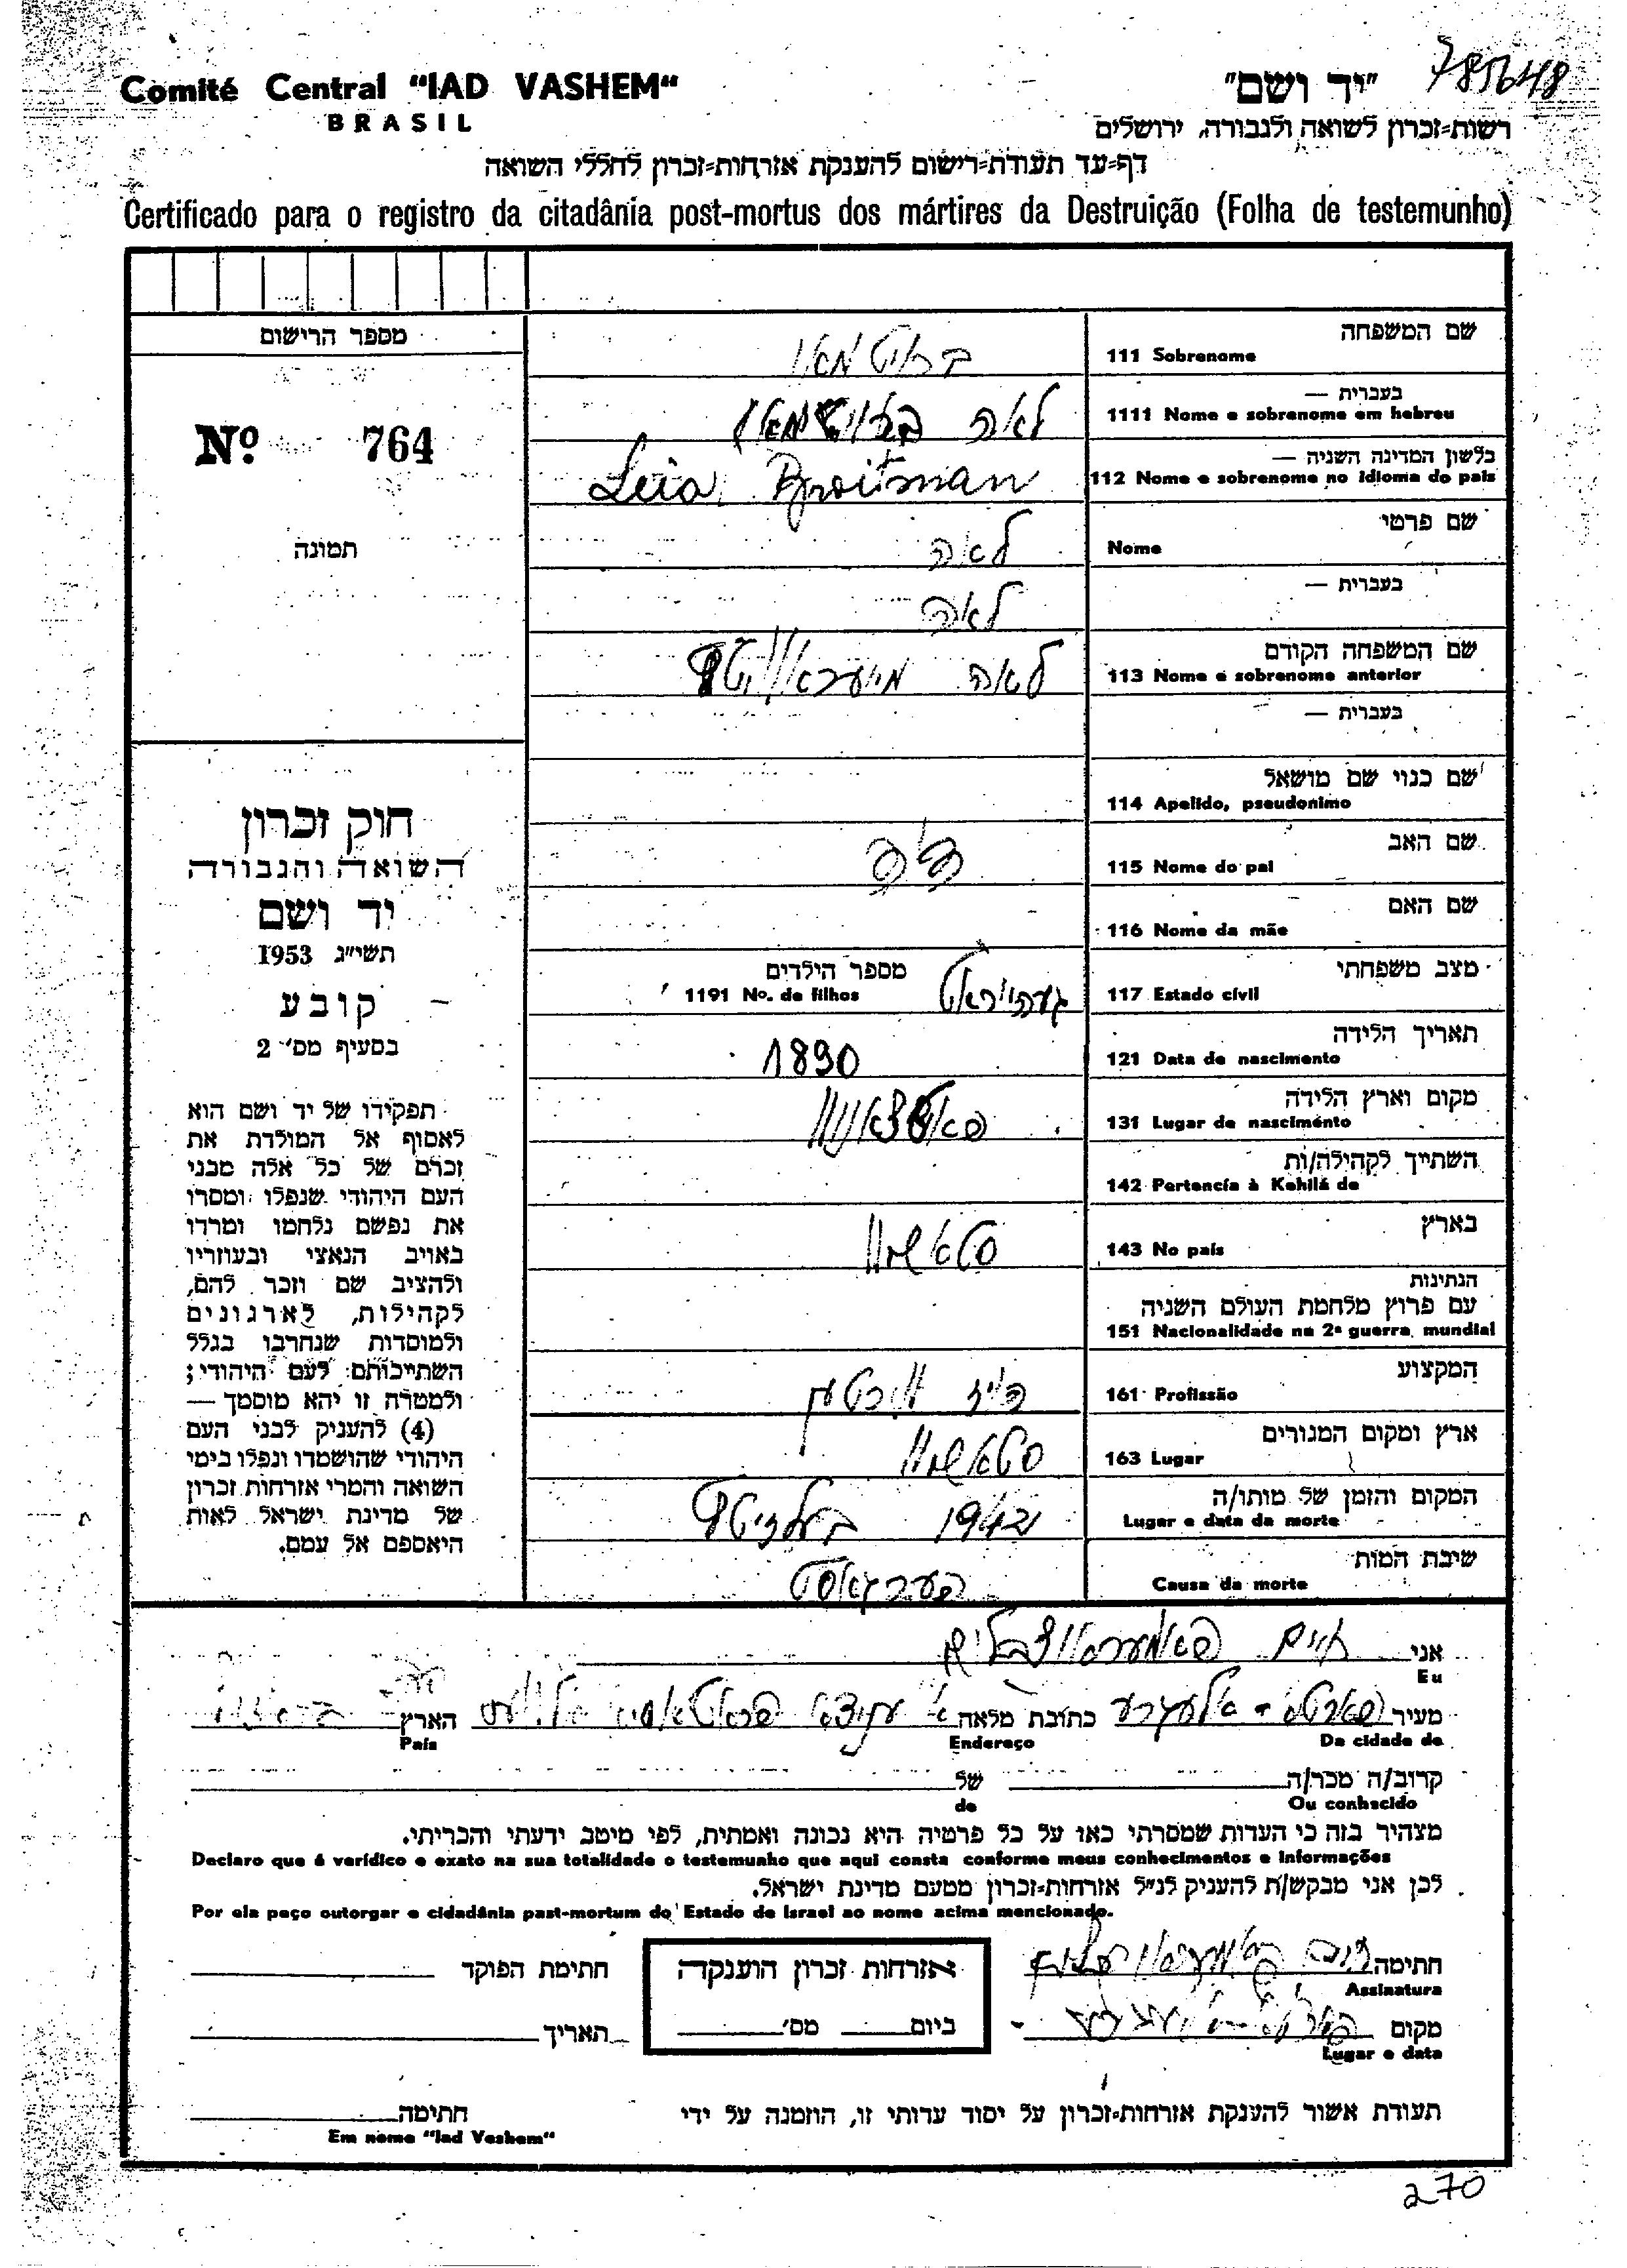 785648
Comité Central “IAD VASHEM“
BRASIL
"יד ושם"
רשות=זכרון לשואה ולגבורה, ירושלים
דף=עד תעודת=רישום להענקת אזרחות=זכרון לחללי השואה
Certificado para o registro da citadânia post-mortus dos mártires da Destruição (Folha de testemunho)
מספר הרישום
Nº 764
תמונה
שם המשפחה
111 Sobrenome
ברויטמאן
בעברית —
1111 Nome e sobrenome em hebreu
לאה ברויטמאן
בלשון המדינה השניה —
112 Nome e sobrenome no idioma do país
Leia Broitman
שם פרטי
Nome
לאה
בעברית —
לאה
שם המשפחה הקודם
113 Nome e sobrenome anterior
לאה
בעברית —
שם כנוי שם מושאל
114 Apelido, pseudonimo
שם האב
115 Nome do pai
שם האם
116 Nome da mãe
מצב משפחתי
117 Estado cívil
מספר הילדים
1191 Nº. de filhos
תאריך הלידה
121 Data de nascimento
1890
מקום וארץ הלידה
131 Lugar de nascimento
השתייך לקהילה/ות
142 Pertencía à Kehilá de
בארץ
143 No país
הנתינות
עם פרוץ מלחמת העולם השניה
151 Nacionalidade na 2ª guerra mundial
המקצוע
161 Profissão
ארץ ומקום המגורים
163 Lugar
המקום והזמן של מותו/ה
Lugar e data da morte
1942 בעלזיטץ
שיבת המות
Causa da morte
פערגאסט
חוק זכרון
השואה והגבורה
יד ושם
תשי"ג 1953
קובע
בסעיף מס׳ 2
תפקידו של יד ושם הוא
לאסוף אל המולדת את
זכרם של כל אלה מבני
העם היהודי שנפלו ומסרו
את נפשם נלחמו ומרדו
באויב הנאצי ובעוזריו
ולהציב שם וזכר להם,
לקהילות, לארגונים
ולמוסדות שנחרבו בגלל
השתייכותם לעם היהודי;
ולמטרה זו יהא מוסמך —
(4) להעניק לבני העם
היהודי שהושמדו ונפלו בימי
השואה והמרי אזרחות זכרון
של מדינת ישראל לאות
היאספם אל עמם.
אני חיים
Eu
מעיר פארטא - אלעגרע כתובת מלאה הארץ
Da cidade de Endereço País
קרוב/ה מכר/ה של
Ou conhecido de
מצהיר בזה כי העדות שמסרתי כאן על כל פרטיה היא נכונה ואמתית, לפי מיטב ידעתי והכריתי.
Declaro que é verídico e exato na sua totalidade o testemunho que aqui consta conforme meus conhecimentos e informações
לכן אני מבקש/ת להעניק לנ"ל אזרחות=זכרון מטעם מדינת ישראל.
Por ela peço outorgar e cidadânia past-mortum do Estado de Israel ao nome acima mencionado.
חתימה
Assinatura
אזרחות זכרון הוענקה
ביום מס׳
חתימת הפוקד
מקום
Lugar e data
תאריך
תעודת אשור להענקת אזרחות=זכרון על יסוד עדותי זו, הוזמנה על ידי
חתימה
Em nome “Iad Vashem“
270